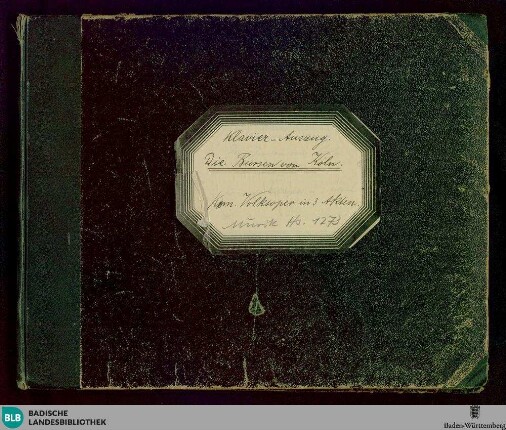 Klavier-Auszug.
Die Bursen von Köln.
kom. Volksoper in 3 Akten
Musik Hs. 1273
BLB
BADISCHE
LANDESBIBLIOTHEK
Baden-Württemberg